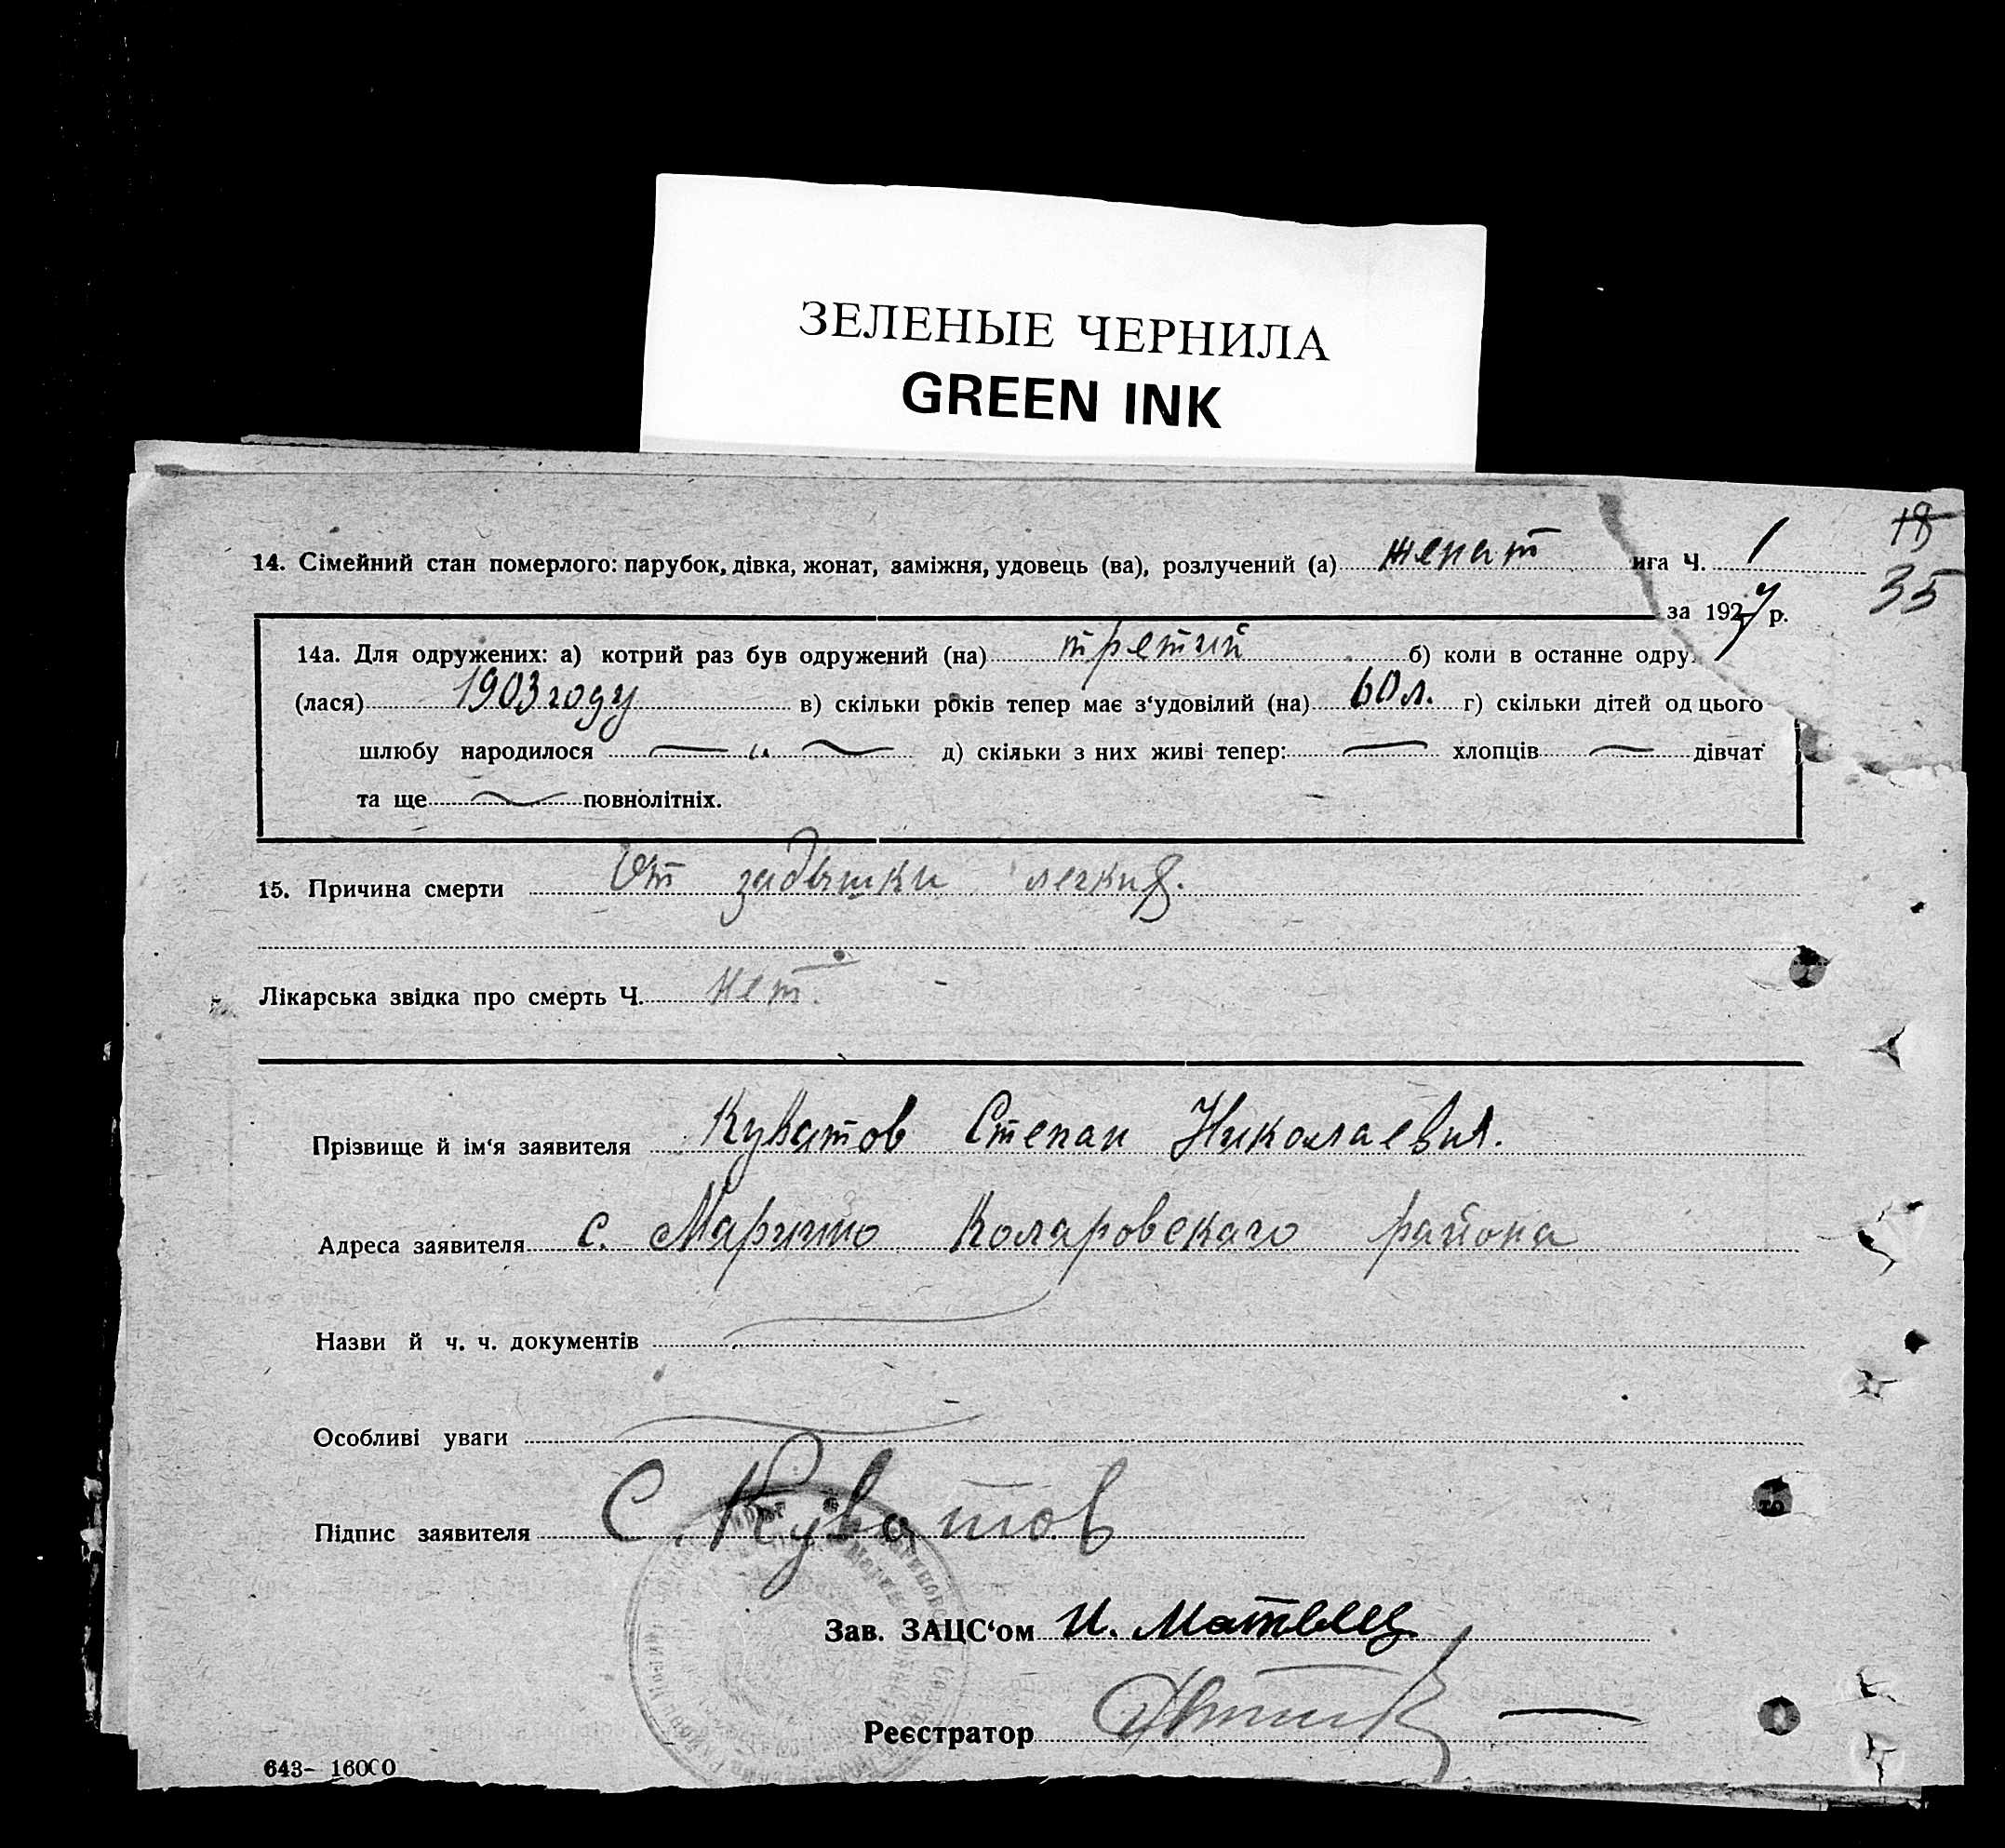 ЗЕЛЕНЫЕ ЧЕРНИЛА
GREEN INK
18
14. Сімейний стан померлого: парубок, дівка, жонат, заміжня, удовець (ва), розлучений (а) женат ига Ч. 1
35
за 1927 р.
14а. Для одружених: а) котрий раз був одружений (на) третий б) коли в останне одру
(лася) 1903 году в) скільки років тепер має з‘удовілий (на) 60 л. г) скільки дітей од цього
шлюбу народилося — „ — д) скільки з них живі тепер: — хлопців — дівчат
та ще — повнолітніх.
15. Причина смерти От задышки легких.
Лікарська звідка про смерть Ч. нет.
Прізвище й ім‘я заявителя Куватов Степан Николаевич.
Адреса заявителя с. Марино Коларовскаго района
Назви й ч. ч. документів —
Особливі уваги —
Підпис заявителя С Куватов
Зав. ЗАЦС‘ом И.
Реєстратор
643– 16000